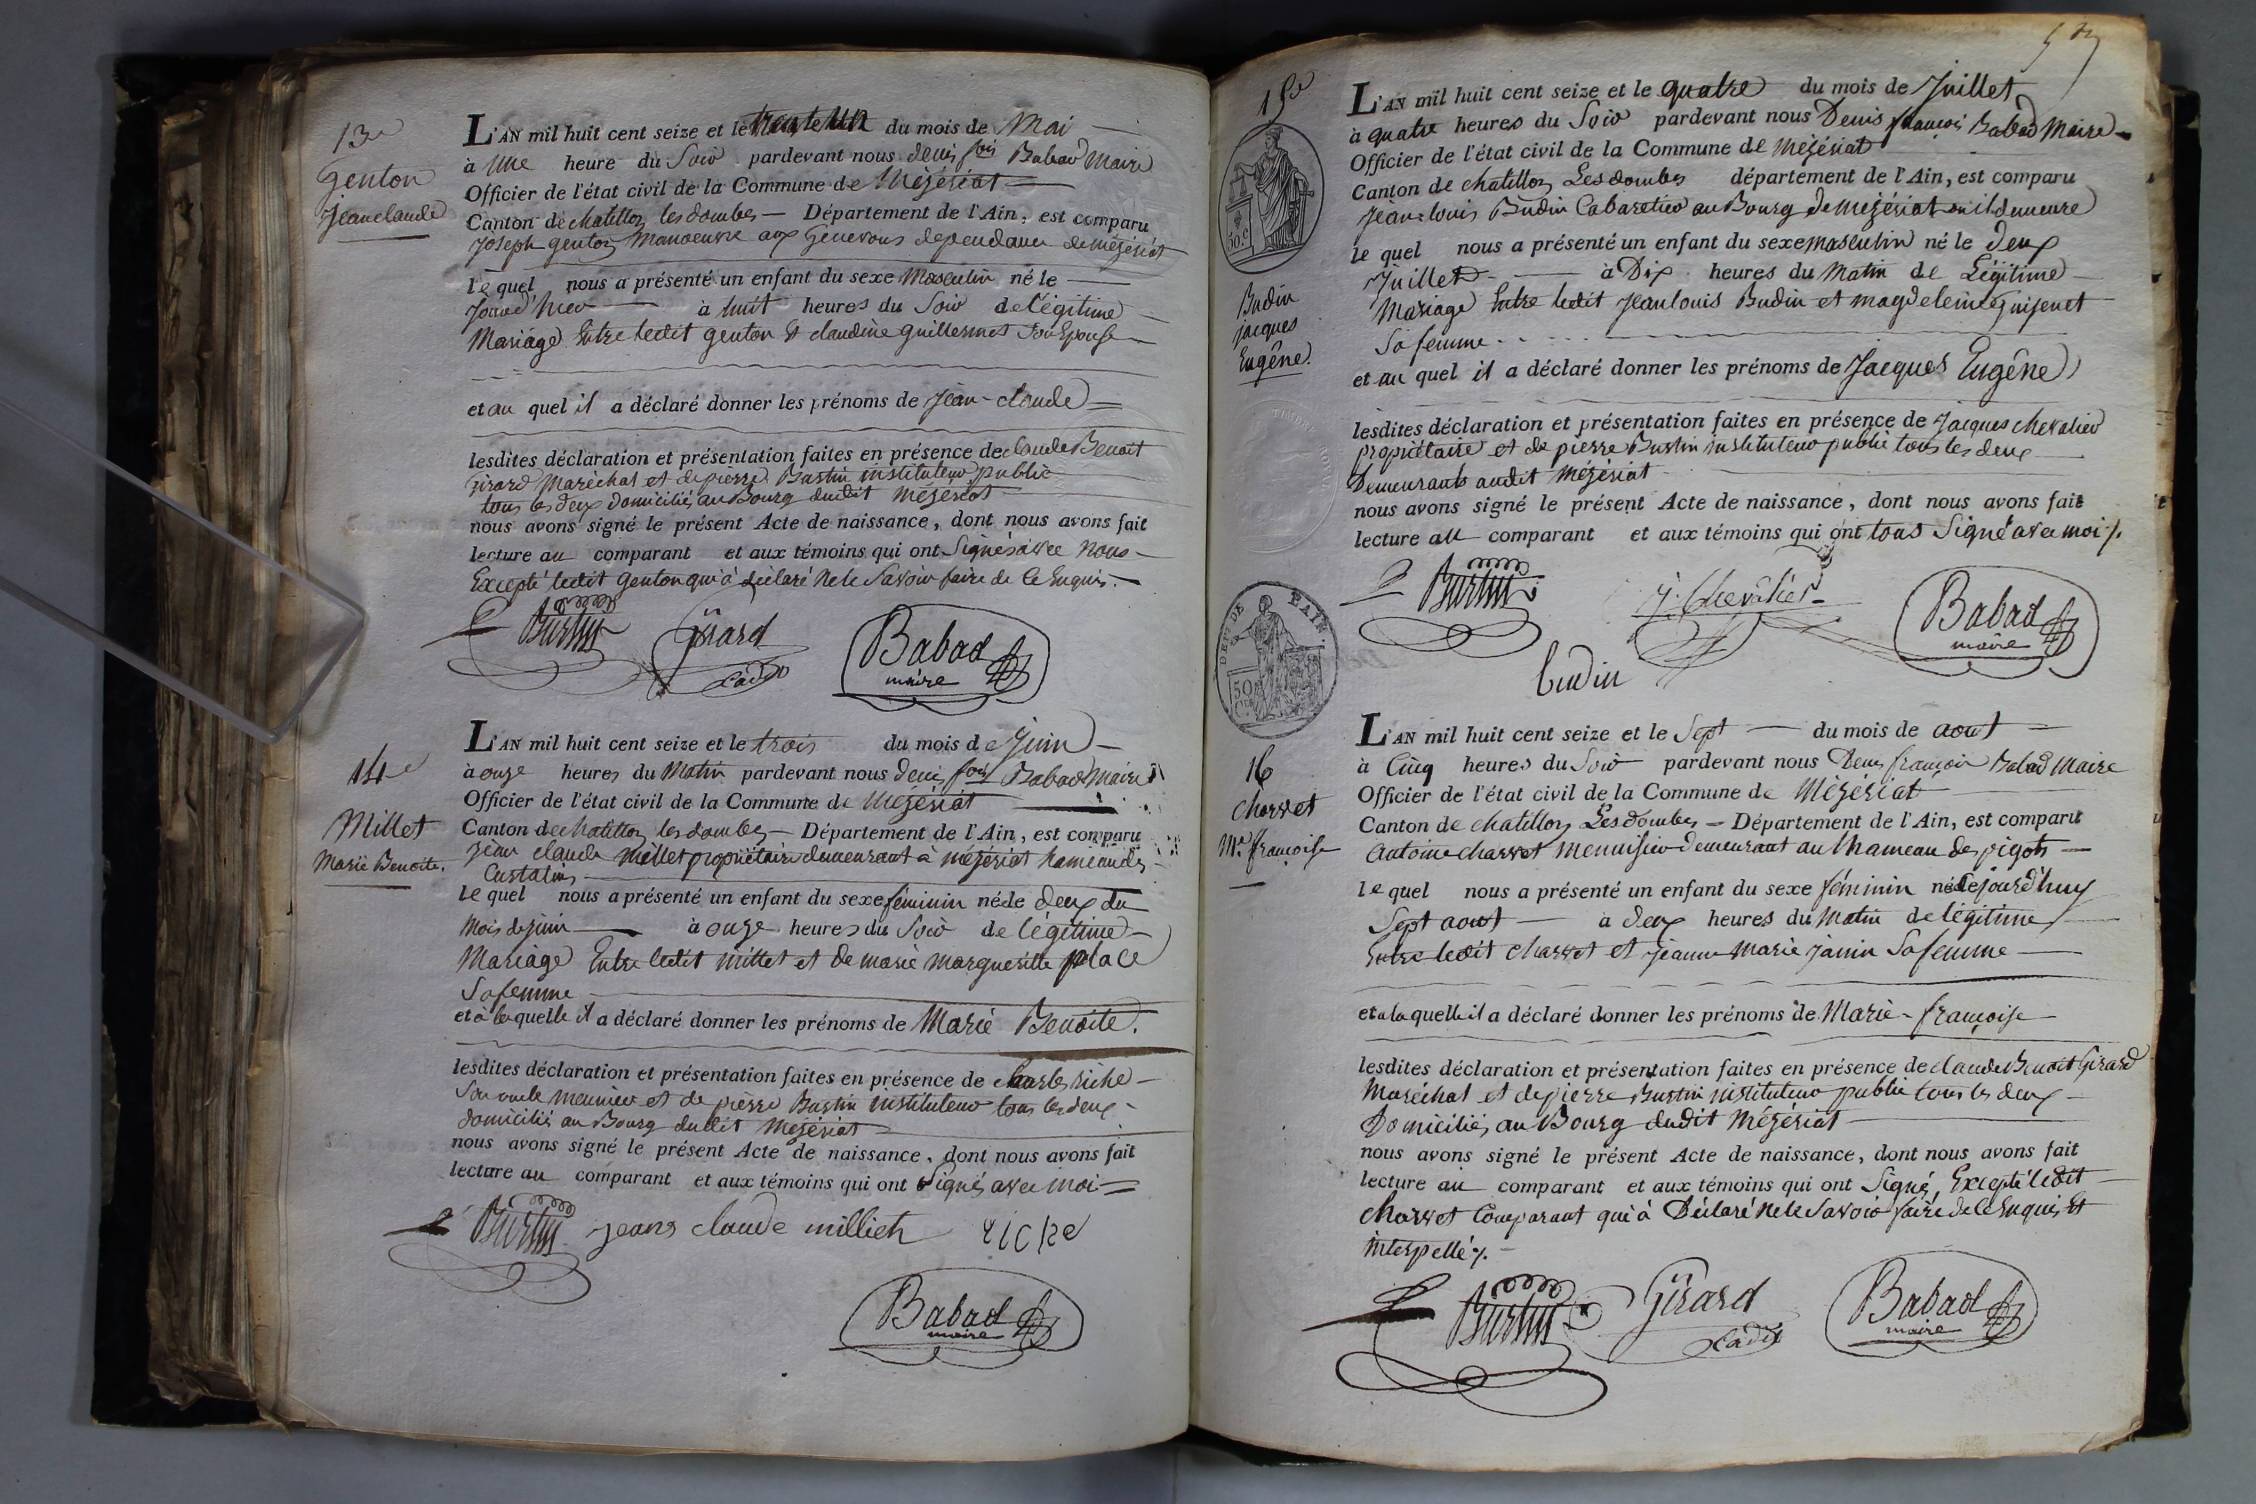 13e
Genton
Jean claude
L'AN mil huit cent seize et le trente un du mois de Mai
à une heure du Soir pardevant nous denis fois Babad Maire
Officier de l'état civil de la Commune de Mézériat
Canton de chatillon les dombes Département de l'Ain, est comparu
Joseph genton Manoeuvre aux Genevous dependance de mézériat
le quel nous a présenté un enfant du sexe Masculin né le
Jourd'hier à huit heures du Soir de légitime
Mariage Entre ledit genton Et claudine guillermet Son Epouse
et au quel il a déclaré donner les prénoms de Jean-claude
lesdites déclaration et présentation faites en présence de claude Benoit
Girard Maréchal et de pierre Burtin instituteur public
tous les deux domiciliés au Bourg dudit Mézériat
nous avons signé le présent Acte de naissance, dont nous avons fait
lecture au comparant et aux témoins qui ont Signés avec Nous
Excepté ledit genton qui à déclaré Ne le Savoir faire de ce Enquis.
Burtin Girard Cadet Babad maire
14e
Millet
Marie Benoite.
L'AN mil huit cent seize et le trois du mois de Juin
à onze heures du Matin pardevant nous denis fois Babad Maire
Officier de l'état civil de la Commune de Mézériat
Canton de chatillon les dombes Département de l'Ain, est comparu
Jean claude Millet propriétaire demeurant à mézériat hameau des
Custalins
le quel nous a présenté un enfant du sexe féminin né le deux du
Mois de juin à onze heures du Soir de légitime
Mariage Entre ledit millet et de marie margueritte place
Sa femme
et à laquelle il a déclaré donner les prénoms de Marie Benoite.
lesdites déclaration et présentation faites en présence de charles riche
Son oncle meunier et de pierre Burtin instituteur tous les deux
domiciliés au Bourg dudit Mézériat
nous avons signé le présent Acte de naissance, dont nous avons fait
lecture au comparant et aux témoins qui ont Signés avec moi
Burtin jeans claude milliet riche
Babad maire
15e
50.c
Budin
jacques
Eugêne.
L'AN mil huit cent seize et le quatre du mois de Juillet
à quatre heures du Soir pardevant nous Denis françois Babad Maire
Officier de l'état civil de la Commune de Mézériat
Canton de chatillon Les dombes département de l'Ain, est comparu
Jean-louis Budin Cabaretier au Bourg de mézériat ou il demeure
le quel nous a présenté un enfant du sexe masculin né le deux
Juillet à Dix heures du Matin de Légitime
Mariage Entre ledit Jean louis Budin et magdeleine guizenet
Sa femme
et au quel il a déclaré donner les prénoms de Jacques Eugêne
lesdites déclaration et présentation faites en présence de Jacques chevalier
propriétaire et de pierre Burtin instituteur public tous les deux
Demeurants audit Mézériat
nous avons signé le présent Acte de naissance, dont nous avons fait
lecture au comparant et aux témoins qui ont tous Signé avec moi
Burtin J. Chevalier Babad maire
budin
DEPT DE L'AIN.
50 Cent
16
Charvet
Mie françoise
L'AN mil huit cent seize et le Sept du mois de aout
à Cinq heures du Soir pardevant nous Denis françois Babad Maire
Officier de l'état civil de la Commune de Mézériat
Canton de chatillon Les dombes Département de l'Ain, est comparu
Antoine charvet Menuisier demeurant au hameau des pigots
le quel nous a présenté un enfant du sexe féminin né Cejourd'huy
Sept aout à deux heures du Matin de légitime
Entre ledit charvet et jeanne Marie janin Sa femme
et a la quelle il a déclaré donner les prénoms de Marie-françoise
lesdites déclaration et présentation faites en présence de claude Benoit Girard
Maréchal et de pierre Burtin instituteur public tous les deux
Domiciliés au Bourg dudit Mézériat
nous avons signé le présent Acte de naissance, dont nous avons fait
lecture au comparant et aux témoins qui ont Signé, Excepté ledit
charvet Comparant qui à Déclaré Ne le Savoir faire de ce Enquis Et
interpellé.
Burtin Girard Cadet Babad maire